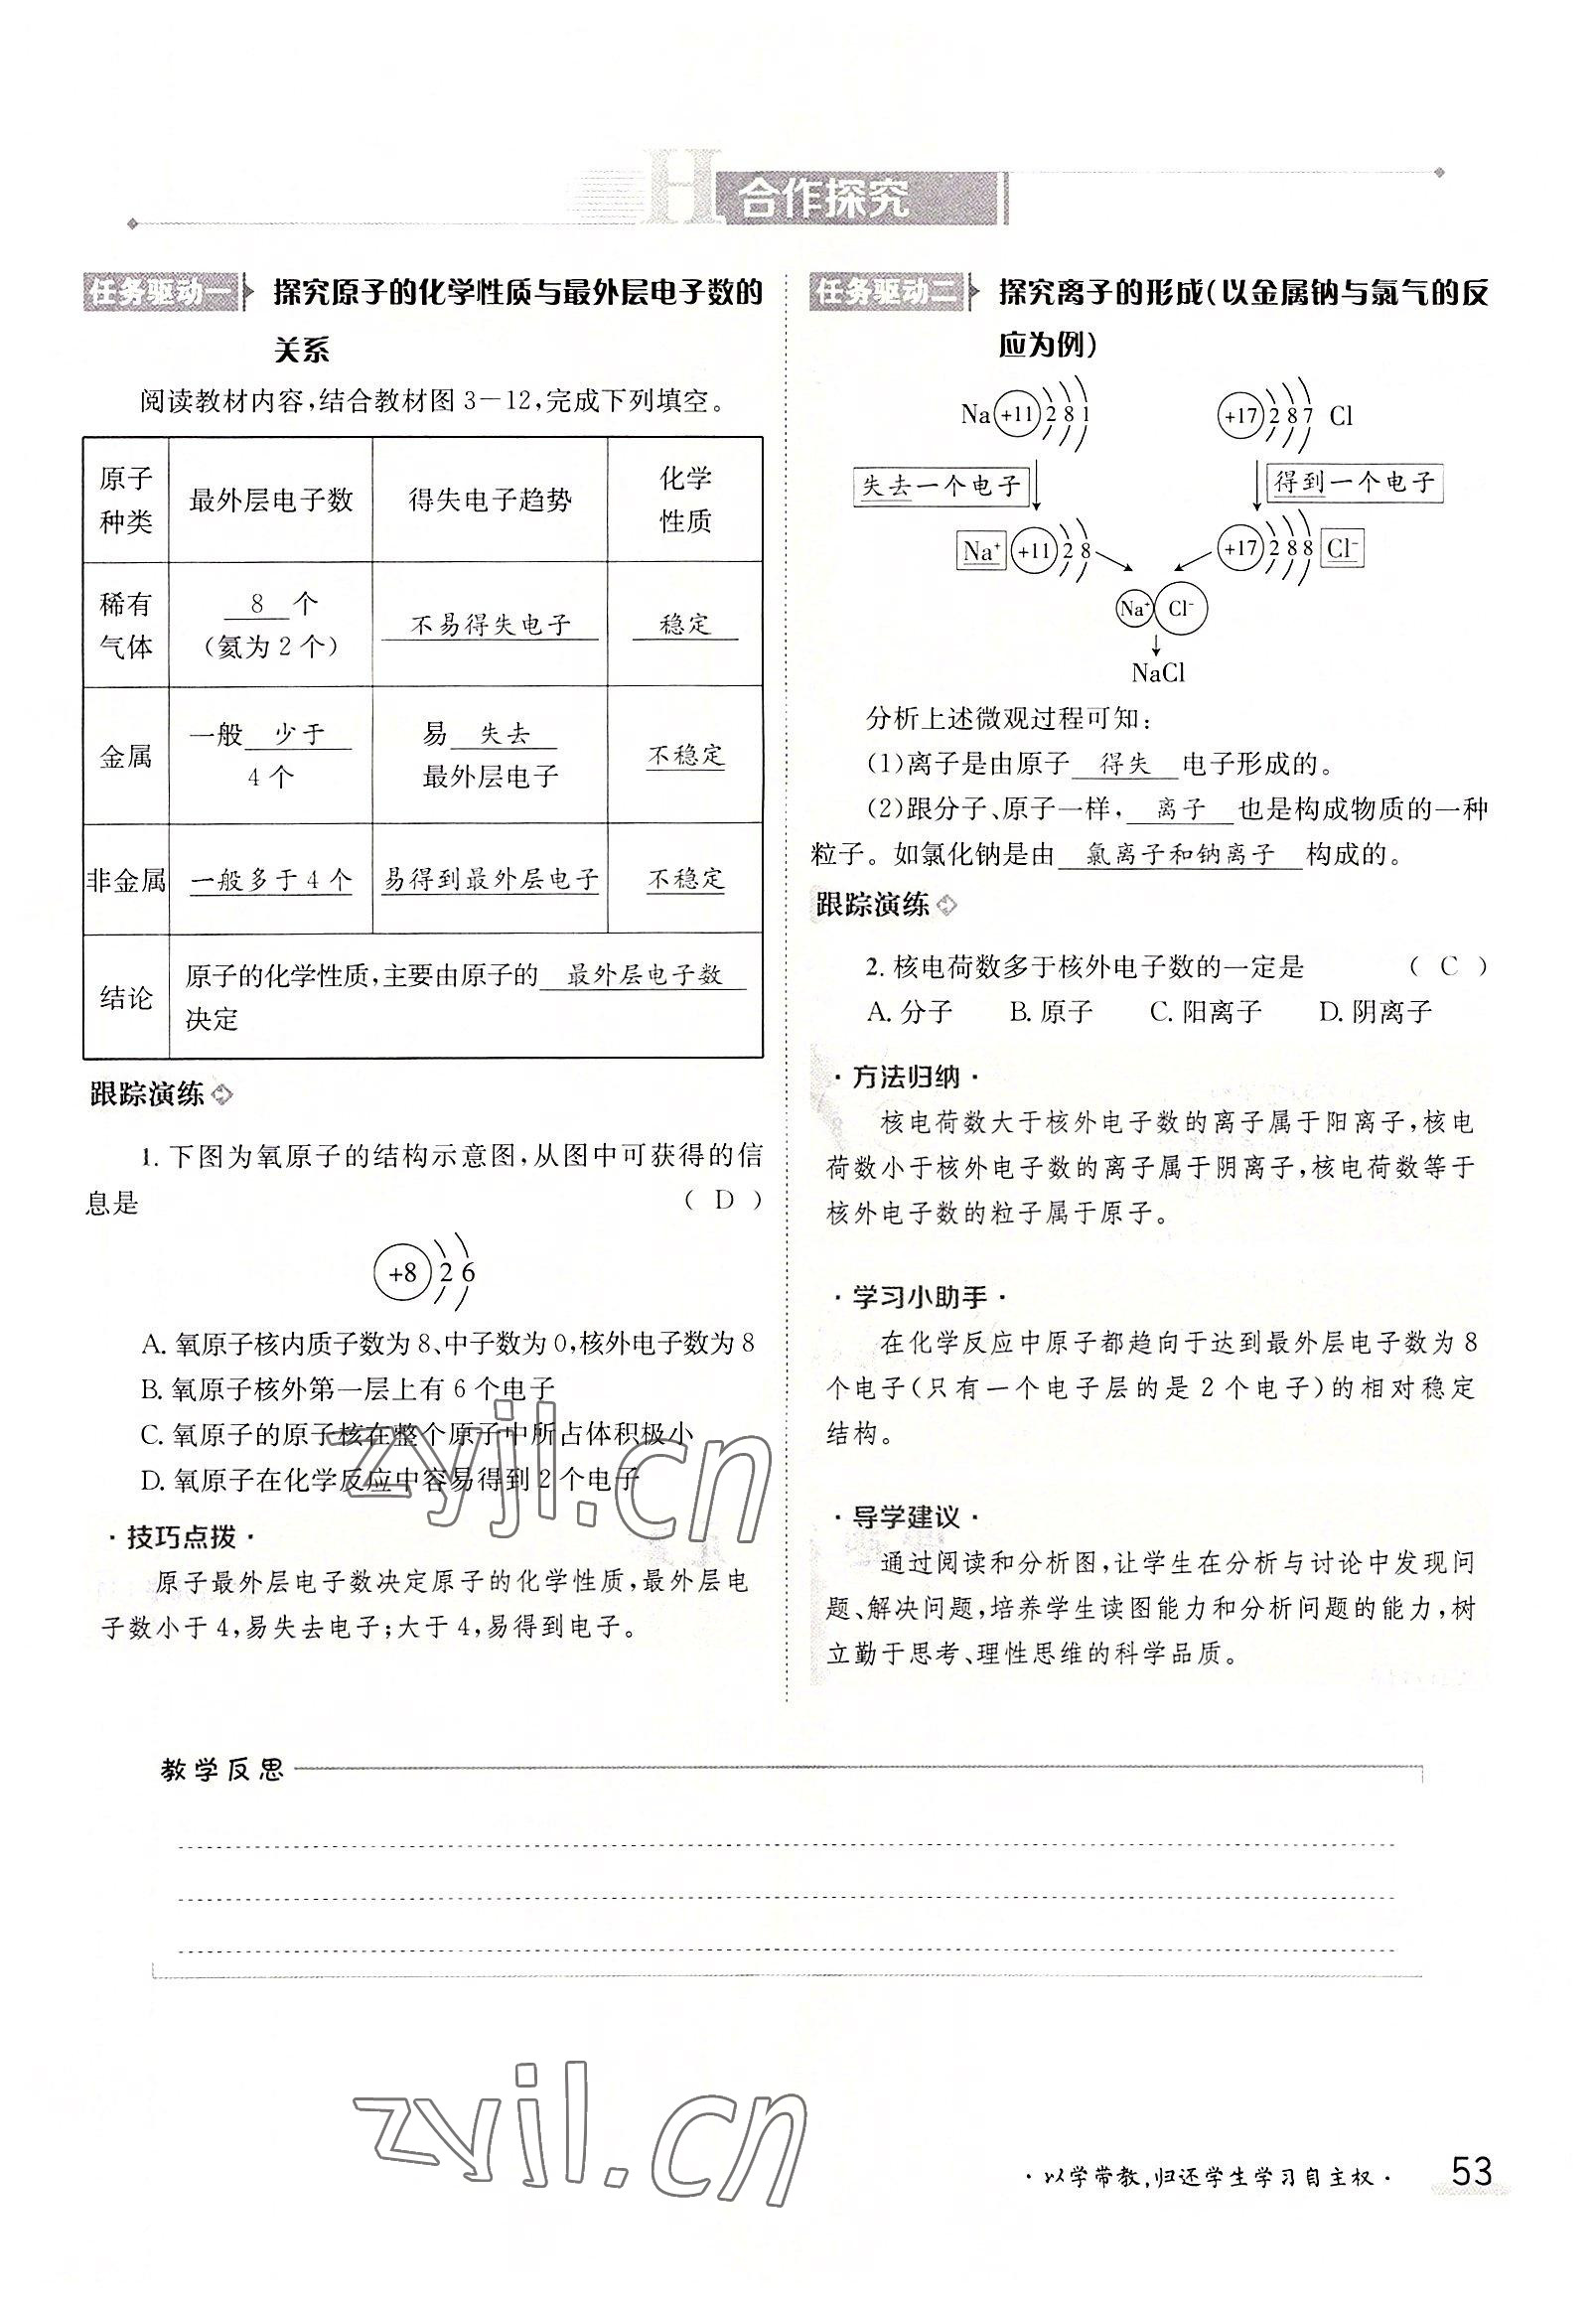 合作探究
任务驱动一 探究原子的化学性质与最外层电子数的
关系
阅读教材内容,结合教材图3-12,完成下列填空。
原子
种类
最外层电子数
得失电子趋势
化学
性质
稀有
气体
8 个
(氦为2个)
不易得失电子
稳定
金属
一般 少于
4个
易 失去
最外层电子
不稳定
非金属
一般多于4个
易得到最外层电子
不稳定
结论
原子的化学性质,主要由原子的 最外层电子数
决定
跟踪演练
1. 下图为氧原子的结构示意图,从图中可获得的信
息是 ( D )
+8 2 6
A. 氧原子核内质子数为8、中子数为0,核外电子数为8
B. 氧原子核外第一层上有6个电子
C. 氧原子的原子核在整个原子中所占体积极小
D. 氧原子在化学反应中容易得到2个电子
·技巧点拨·
原子最外层电子数决定原子的化学性质,最外层电
子数小于4,易失去电子;大于4,易得到电子。
任务驱动二 探究离子的形成(以金属钠与氯气的反
应为例)
Na +11 2 8 1
+17 2 8 7 Cl
失去一个电子
得到一个电子
Na⁺ +11 2 8
+17 2 8 8 Cl⁻
Na⁺ Cl⁻
NaCl
分析上述微观过程可知:
(1)离子是由原子 得失 电子形成的。
(2)跟分子、原子一样, 离子 也是构成物质的一种
粒子。如氯化钠是由 氯离子和钠离子 构成的。
跟踪演练
2. 核电荷数多于核外电子数的一定是 ( C )
A. 分子 B. 原子 C. 阳离子 D. 阴离子
·方法归纳·
核电荷数大于核外电子数的离子属于阳离子,核电
荷数小于核外电子数的离子属于阴离子,核电荷数等于
核外电子数的粒子属于原子。
·学习小助手·
在化学反应中原子都趋向于达到最外层电子数为8
个电子(只有一个电子层的是2个电子)的相对稳定
结构。
·导学建议·
通过阅读和分析图,让学生在分析与讨论中发现问
题、解决问题,培养学生读图能力和分析问题的能力,树
立勤于思考、理性思维的科学品质。
zyjl.cn
教学反思
zyjl.cn
·以学带教,归还学生学习自主权· 53